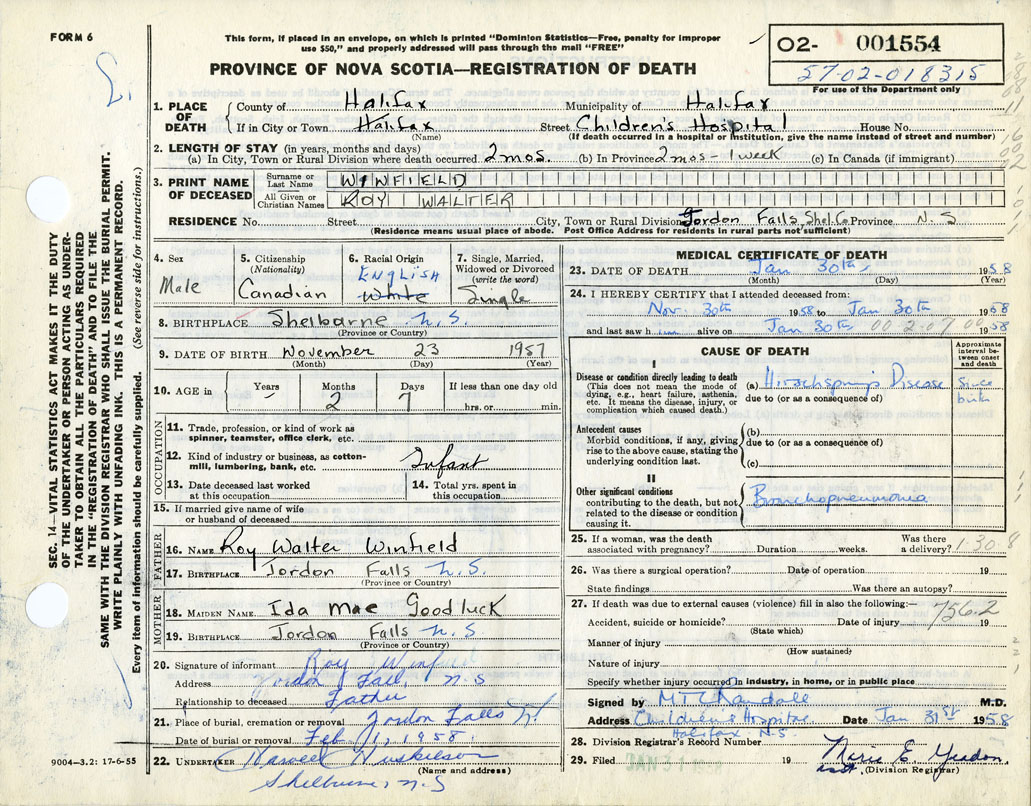 FORM 6
This form, if placed in an envelope, on which is printed "Dominion Statistics—Free, penalty for improper
use $50," and properly addressed will pass through the mail "FREE"
PROVINCE OF NOVA SCOTIA—REGISTRATION OF DEATH
02- 001554
57-02-018315
For use of the Department only
1. PLACE OF DEATH
County of Halifax Municipality of Halifax
If in City or Town Halifax Street Children's Hospital House No.
(Name) (If death occurred in a hospital or institution, give the name instead of street and number)
2. LENGTH OF STAY (in years, months and days)
(a) In City, Town or Rural Division where death occurred 2 mos. (b) In Province 2 mos - 1 week (c) In Canada (if immigrant)
3. PRINT NAME OF DECEASED
Surname or Last Name WINFIELD
All Given or Christian Names ROY WALTER
RESIDENCE No. Street City, Town or Rural Division Jordon Falls, Shel. Co Province N. S
(Residence means usual place of abode. Post Office Address for residents in rural parts not sufficient)
4. Sex
Male
5. Citizenship
(Nationality)
Canadian
6. Racial Origin
ENGLISH
White
7. Single, Married,
Widowed or Divorced
(write the word)
Single
8. BIRTHPLACE Shelbarne N. S.
(Province or Country)
9. DATE OF BIRTH November 23 1957
(Month) (Day) (Year)
10. AGE in Years - Months 2 Days 7 If less than one day old
hrs. or min.
OCCUPATION
11. Trade, profession, or kind of work as
spinner, teamster, office clerk, etc.
12. Kind of industry or business, as cotton-
mill, lumbering, bank, etc. Infant
13. Date deceased last worked
at this occupation
14. Total yrs. spent in
this occupation
15. If married give name of wife
or husband of deceased
FATHER
16. NAME Roy Walter Winfield
17. BIRTHPLACE Jordon Falls N. S.
(Province or Country)
MOTHER
18. MAIDEN NAME. Ida Mae Goodluck
19. BIRTHPLACE Jordon Falls N. S
(Province or Country)
20. Signature of informant Roy Winfield
Address Jordon Falls, N. S
Relationship to deceased Father
21. Place of burial, cremation or removal Jordon Falls N.S
Date of burial or removal Feb 1, 1958.
22. UNDERTAKER
(Name and address)
Shelburne, N. S
9004—3.2: 17-6-55
MEDICAL CERTIFICATE OF DEATH
23. DATE OF DEATH Jan 30th 1958
(Month) (Day) (Year)
24. I HEREBY CERTIFY that I attended deceased from:
Nov. 30th 1958 to Jan 30th 1958
and last saw him alive on Jan 30th 1958
00 2.07 00
CAUSE OF DEATH
Approximate
interval be-
tween onset
and death
I
Disease or condition directly leading to death
(This does not mean the mode of
dying, e.g., heart failure, asthenia,
etc. It means the disease, injury, or
complication which caused death.)
(a) Hirschsprung's Disease Since birth
due to (or as a consequence of)
Antecedent causes
Morbid conditions, if any, giving
rise to the above cause, stating the
underlying condition last.
(b)
due to (or as a consequence of)
(c)
II
Other significant conditions
contributing to the death, but not
related to the disease or condition
causing it.
Bronchopneumonia
25. If a woman, was the death
associated with pregnancy? Duration weeks. Was there
a delivery?
1-30 8
26. Was there a surgical operation? Date of operation 19
State findings Was there an autopsy?
27. If death was due to external causes (violence) fill in also the following:—
756.2
Accident, suicide or homicide? Date of injury 19
(State which)
Manner of injury
(How sustained)
Nature of injury
Specify whether injury occurred in industry, in home, or in public place
Signed by M.D.
Address Children's Hospital Date Jan 31st 1958
Halifax N.S.
28. Division Registrar's Record Number
29. Filed JAN 31 1958 19 Marie E. Yeadon
asst. (Division Registrar)
SEC. 14—VITAL STATISTICS ACT MAKES IT THE DUTY
OF THE UNDERTAKER OR PERSON ACTING AS UNDER-
TAKER TO OBTAIN ALL THE PARTICULARS REQUIRED
IN THE "REGISTRATION OF DEATH" AND TO FILE THE
SAME WITH THE DIVISION REGISTRAR WHO SHALL ISSUE THE BURIAL PERMIT.
WRITE PLAINLY WITH UNFADING INK. THIS IS A PERMANENT RECORD.
Every item of information should be carefully supplied. (See reverse side for instructions.)